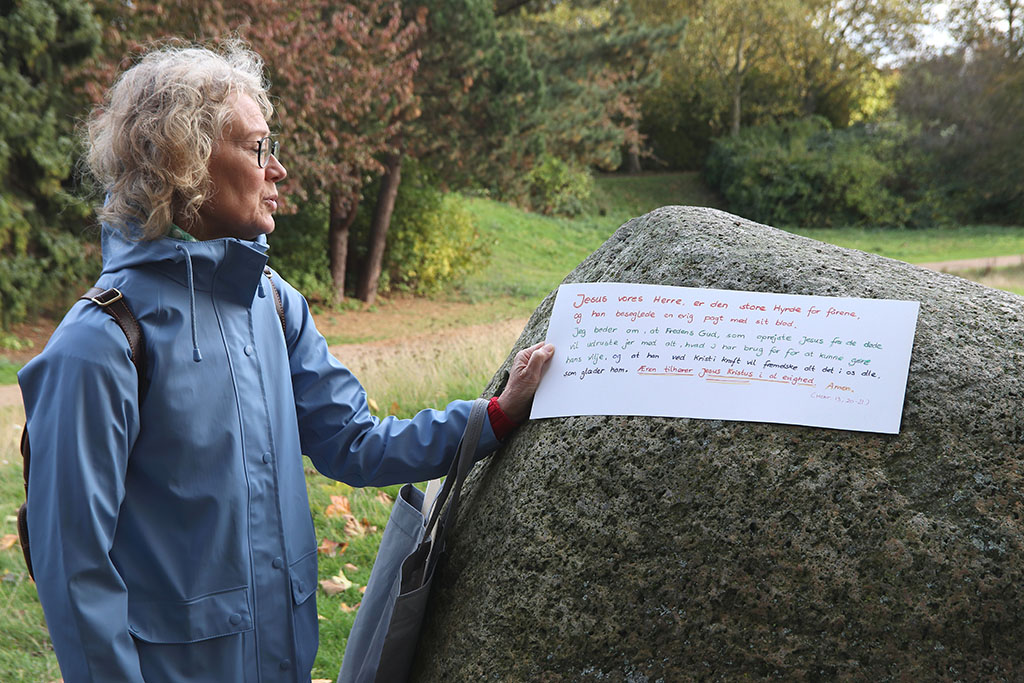 Jesus vores Herre, er den store Hyrde for fårene,
og han beseglede en evig pagt med sit blod.
Jeg beder om, at Fredens Gud, som oprejste Jesus fra de døde
vil udruste jer med alt, hvad I har brug for for at kunne gøre
hans vilje, og at han ved Kristi kraft vil fremelske alt det i os alle,
som glæder ham. Æren tilhører Jesus Kristus i al evighed. Amen.
13, 20-21)